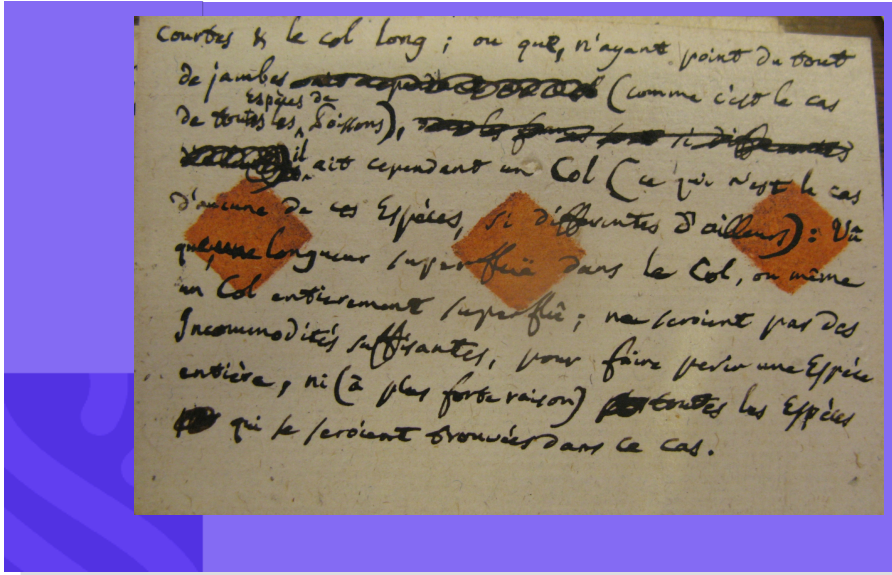 courtes & le col long ; ou que, n'ayant point du tout
de jambes (comme c'est le cas
Espèces de
de toutes les Poissons),
il ait cependant un Col (ce qui n'est le cas
d'aucune de ces Espèces, si différentes d'ailleurs) : Vû
qu'une longueur superflüe dans le Col, ou même
un Col entierement superflû ; ne seroient pas des
Incommodités suffisantes, pour faire perir une Espèce
entière, ni (à plus forte raison) toutes les Espèces
qui se seroient trouvées dans ce cas.